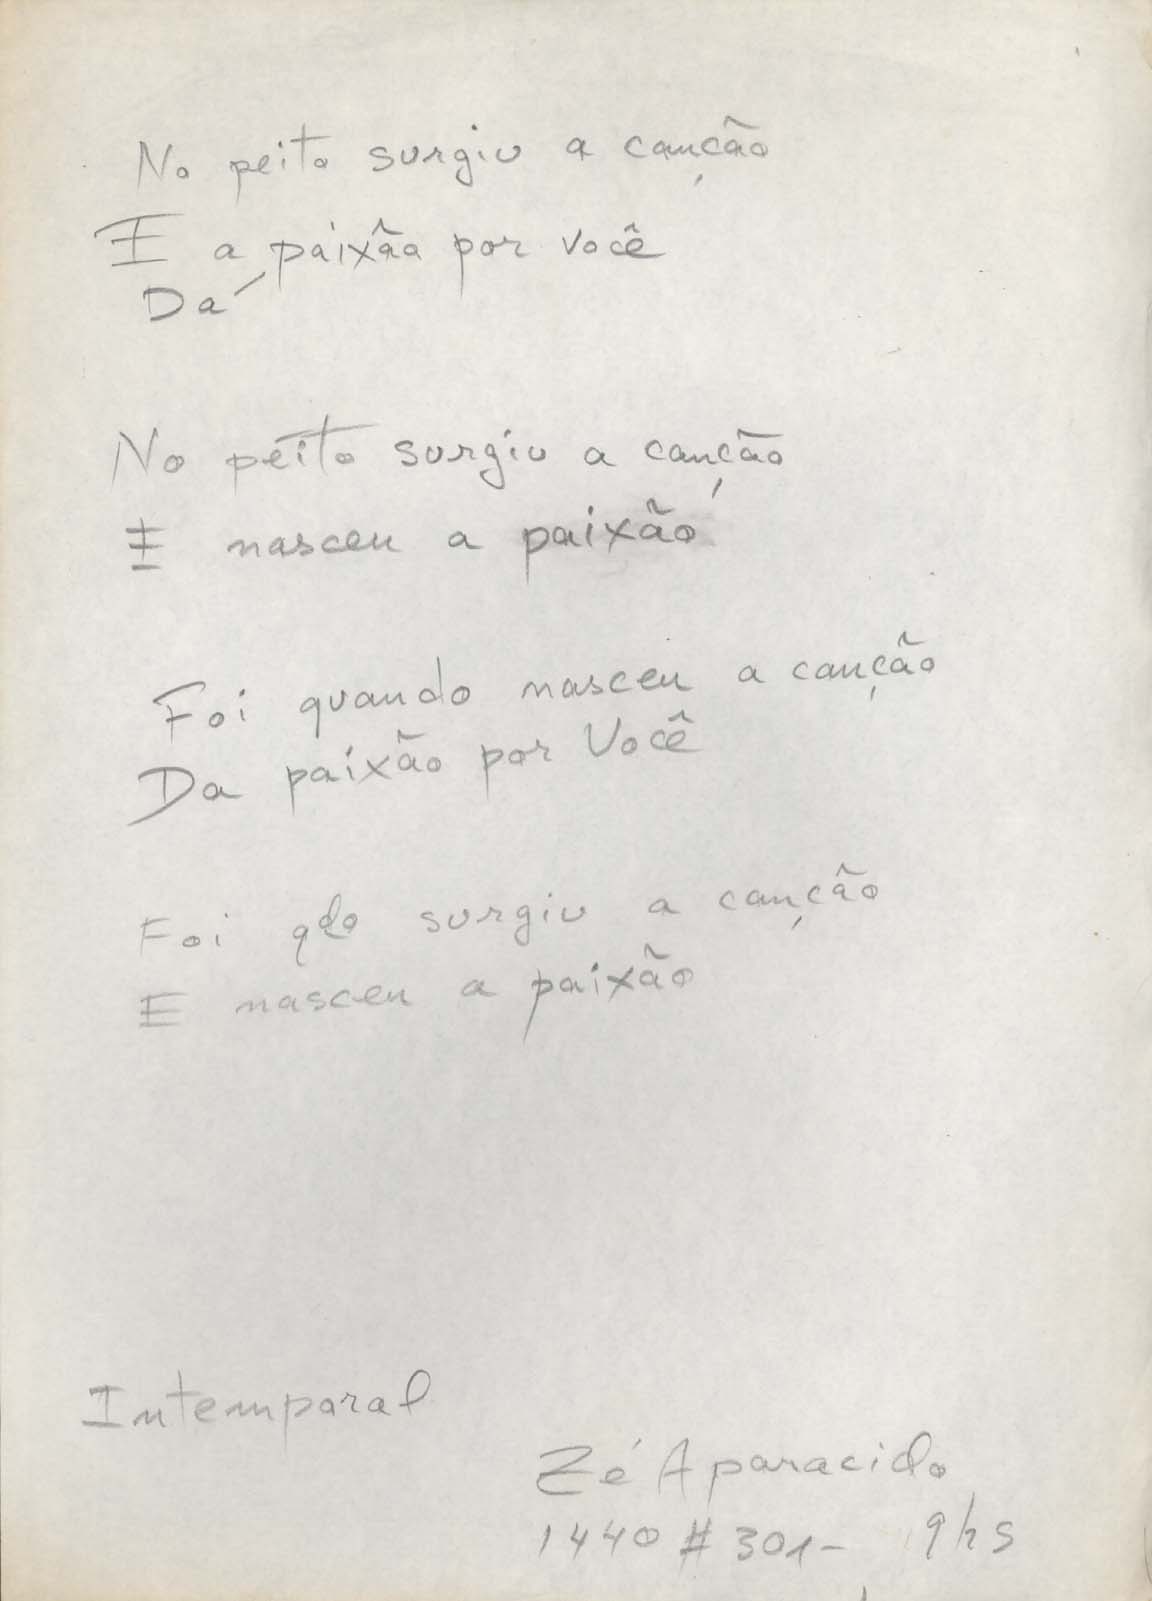 No peito surgiu a canção
E a paixão por você
Da
No peito surgiu a canção
E nasceu a paixão
Foi quando nasceu a canção
Da paixão por Você
Foi qdo surgiu a canção
E nasceu a paixão
Intemporal
Zé Aparacido
1440 # 301- 9hs